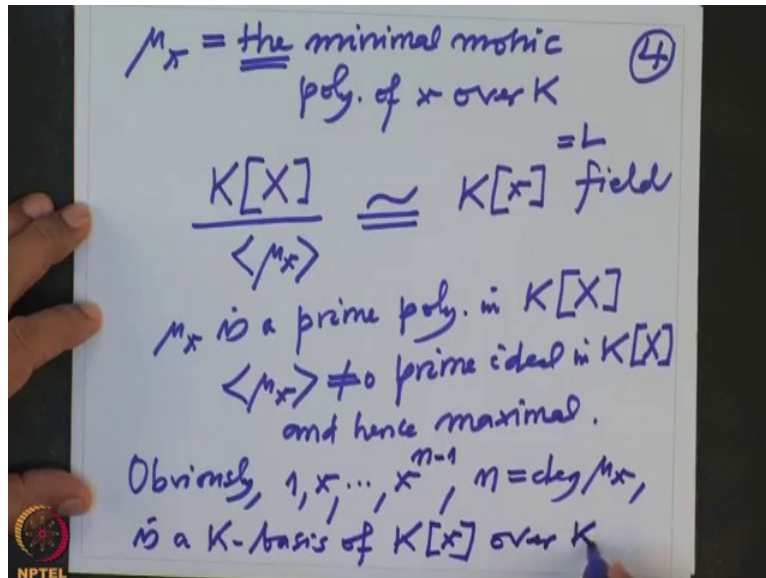 μₓ = the minimal monic ④
poly. of x over K
= L
K[X] ≃ K[x] field
<μₓ>
μₓ is a prime poly. in K[X]
<μₓ> ≠ 0 prime ideal in K[X]
and hence maximal.
Obviously, 1, x, ..., xⁿ⁻¹, n = deg μₓ,
is a K-basis of K[x] over K
NPTEL